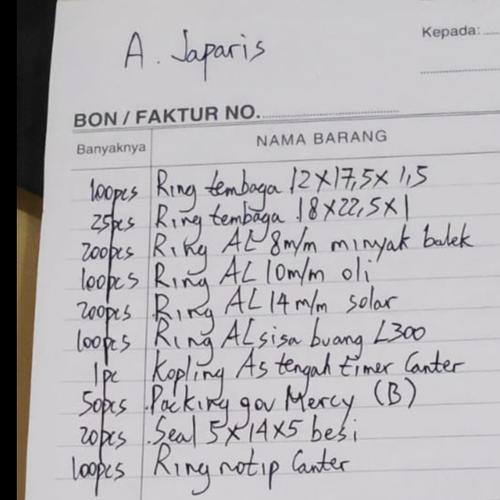 A. Japaris
Kepada:
BON / FAKTUR NO.
Banyaknya NAMA BARANG
100pcs Ring tembaga 12x17,5x1,5
25pcs Ring tembaga 18x22,5x1
200pcs Ring AL 8m/m minyak balek
100pcs Ring AL 10m/m oli
200pcs Ring AL 14m/m solar
100pcs Ring AL sisa buang L300
1pc Kopling As tengah timer Canter
50pcs Packing gov Mercy (B)
20pcs Seal 5x14x5 besi
100pcs Ring notip Canter